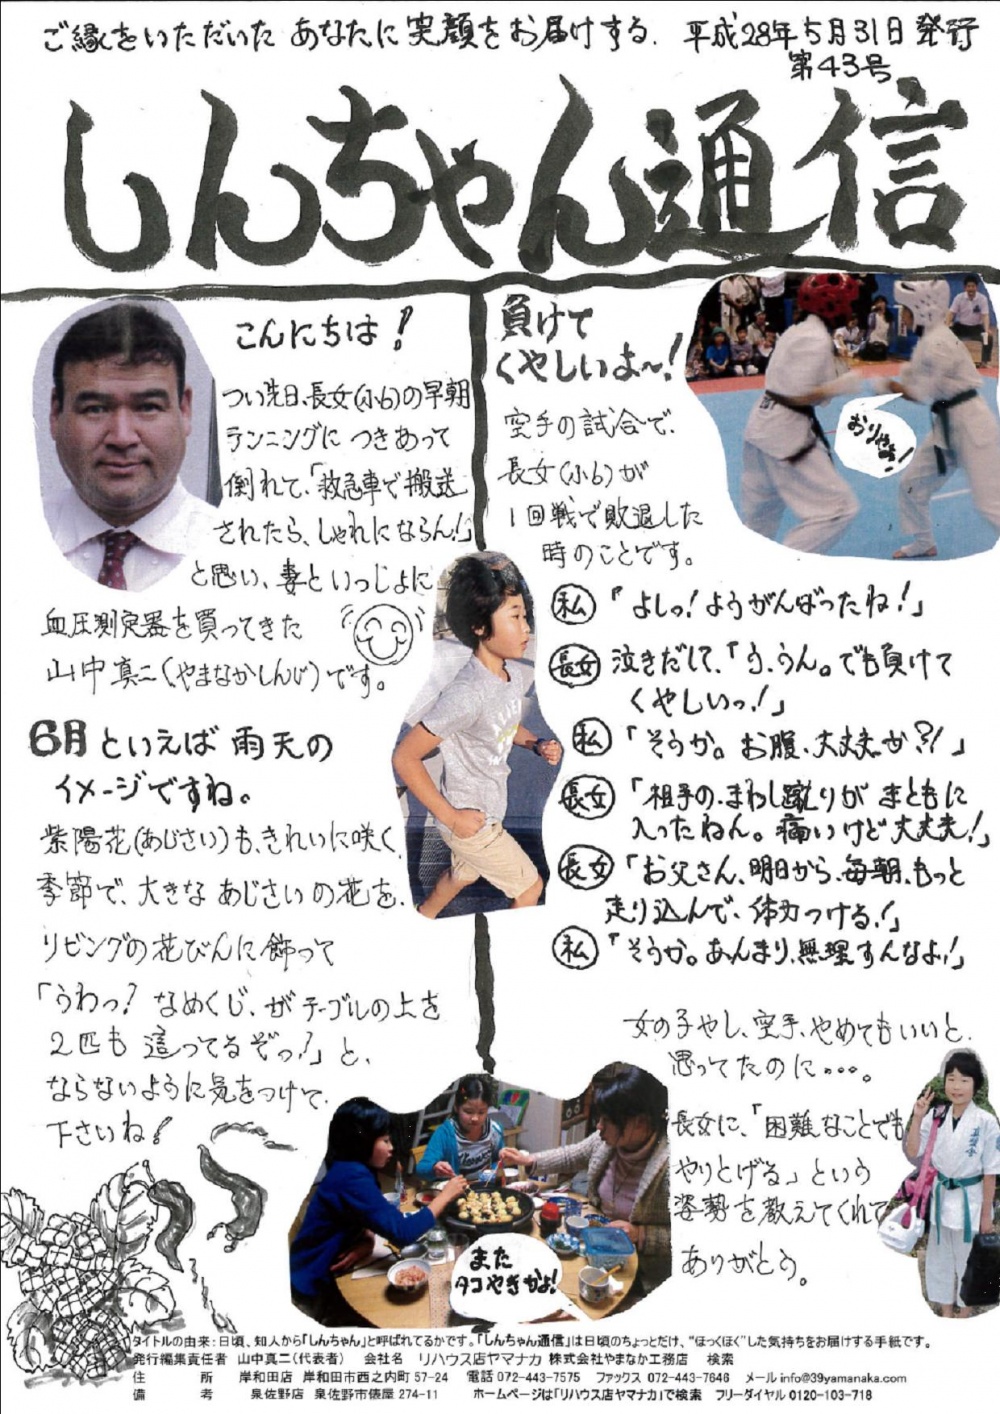 ご縁をいただいた あなたに 笑顔を お届けする. 平成28年5月31日 発行
第43号
しんちゃん通信
こんにちは!
つい先日、長女(小6)の早朝
ランニングに つきあって
倒れて、「救急車で搬送
されたら、しゃれにならん!」
と思い、妻といっしょに
血圧測定器を買ってきた
山中真二(やまなかしんじ)です。
6月といえば 雨天の
イメージですね。
紫陽花(あじさい)も、きれいに咲く
季節で、大きな あじさいの花を、
リビングの花びんに飾って
「うわっ? なめくじ、が テーブルの上を
2匹も 這ってるぞっ!」と、
ならないように気をつけて、
下さいね!
負けて
くやしいよ〜!
空手の試合で、
長女(小6)が
1回戦で敗退した
時のことです。
おりゃあ!
私 「よしっ!ようがんばったね!」
長女 泣きだして、「う、うん。でも負けて
くやしいっ!」
私 「そうか。お腹、大丈夫か?!」
長女 「相手の、まわし蹴りが まともに
入ったねん。痛いけど大丈夫!」
長女 「お父さん、明日から、毎朝、もっと
走り込んで、体力つける!」
私 「そうか。あんまり、無理すんなよ!」
女の子やし、空手、やめてもいいと、
思ってたのに・・・。
長女に、「困難なことでも
やりとげる」という
姿勢を教えてくれて
ありがとう。
また
タコやきかよ!
タイトルの由来:日頃、知人から「しんちゃん」と呼ばれてるからです。「しんちゃん通信」は日頃のちょっとだけ、“ほっくほく”した気持ちをお届けする手紙です。
発行編集責任者 山中真二(代表者) 会社名 リハウス店ヤマナカ 株式会社やまなか工務店 検索
住 所 岸和田店 岸和田市西之内町 57-24 電話 072-443-7575 ファックス 072-443-7646 メール info@39yamanaka.com
備 考 泉佐野店 泉佐野市俵屋 274-11 ホームページは「リハウス店ヤマナカ」で検索 フリーダイヤル 0120-103-718